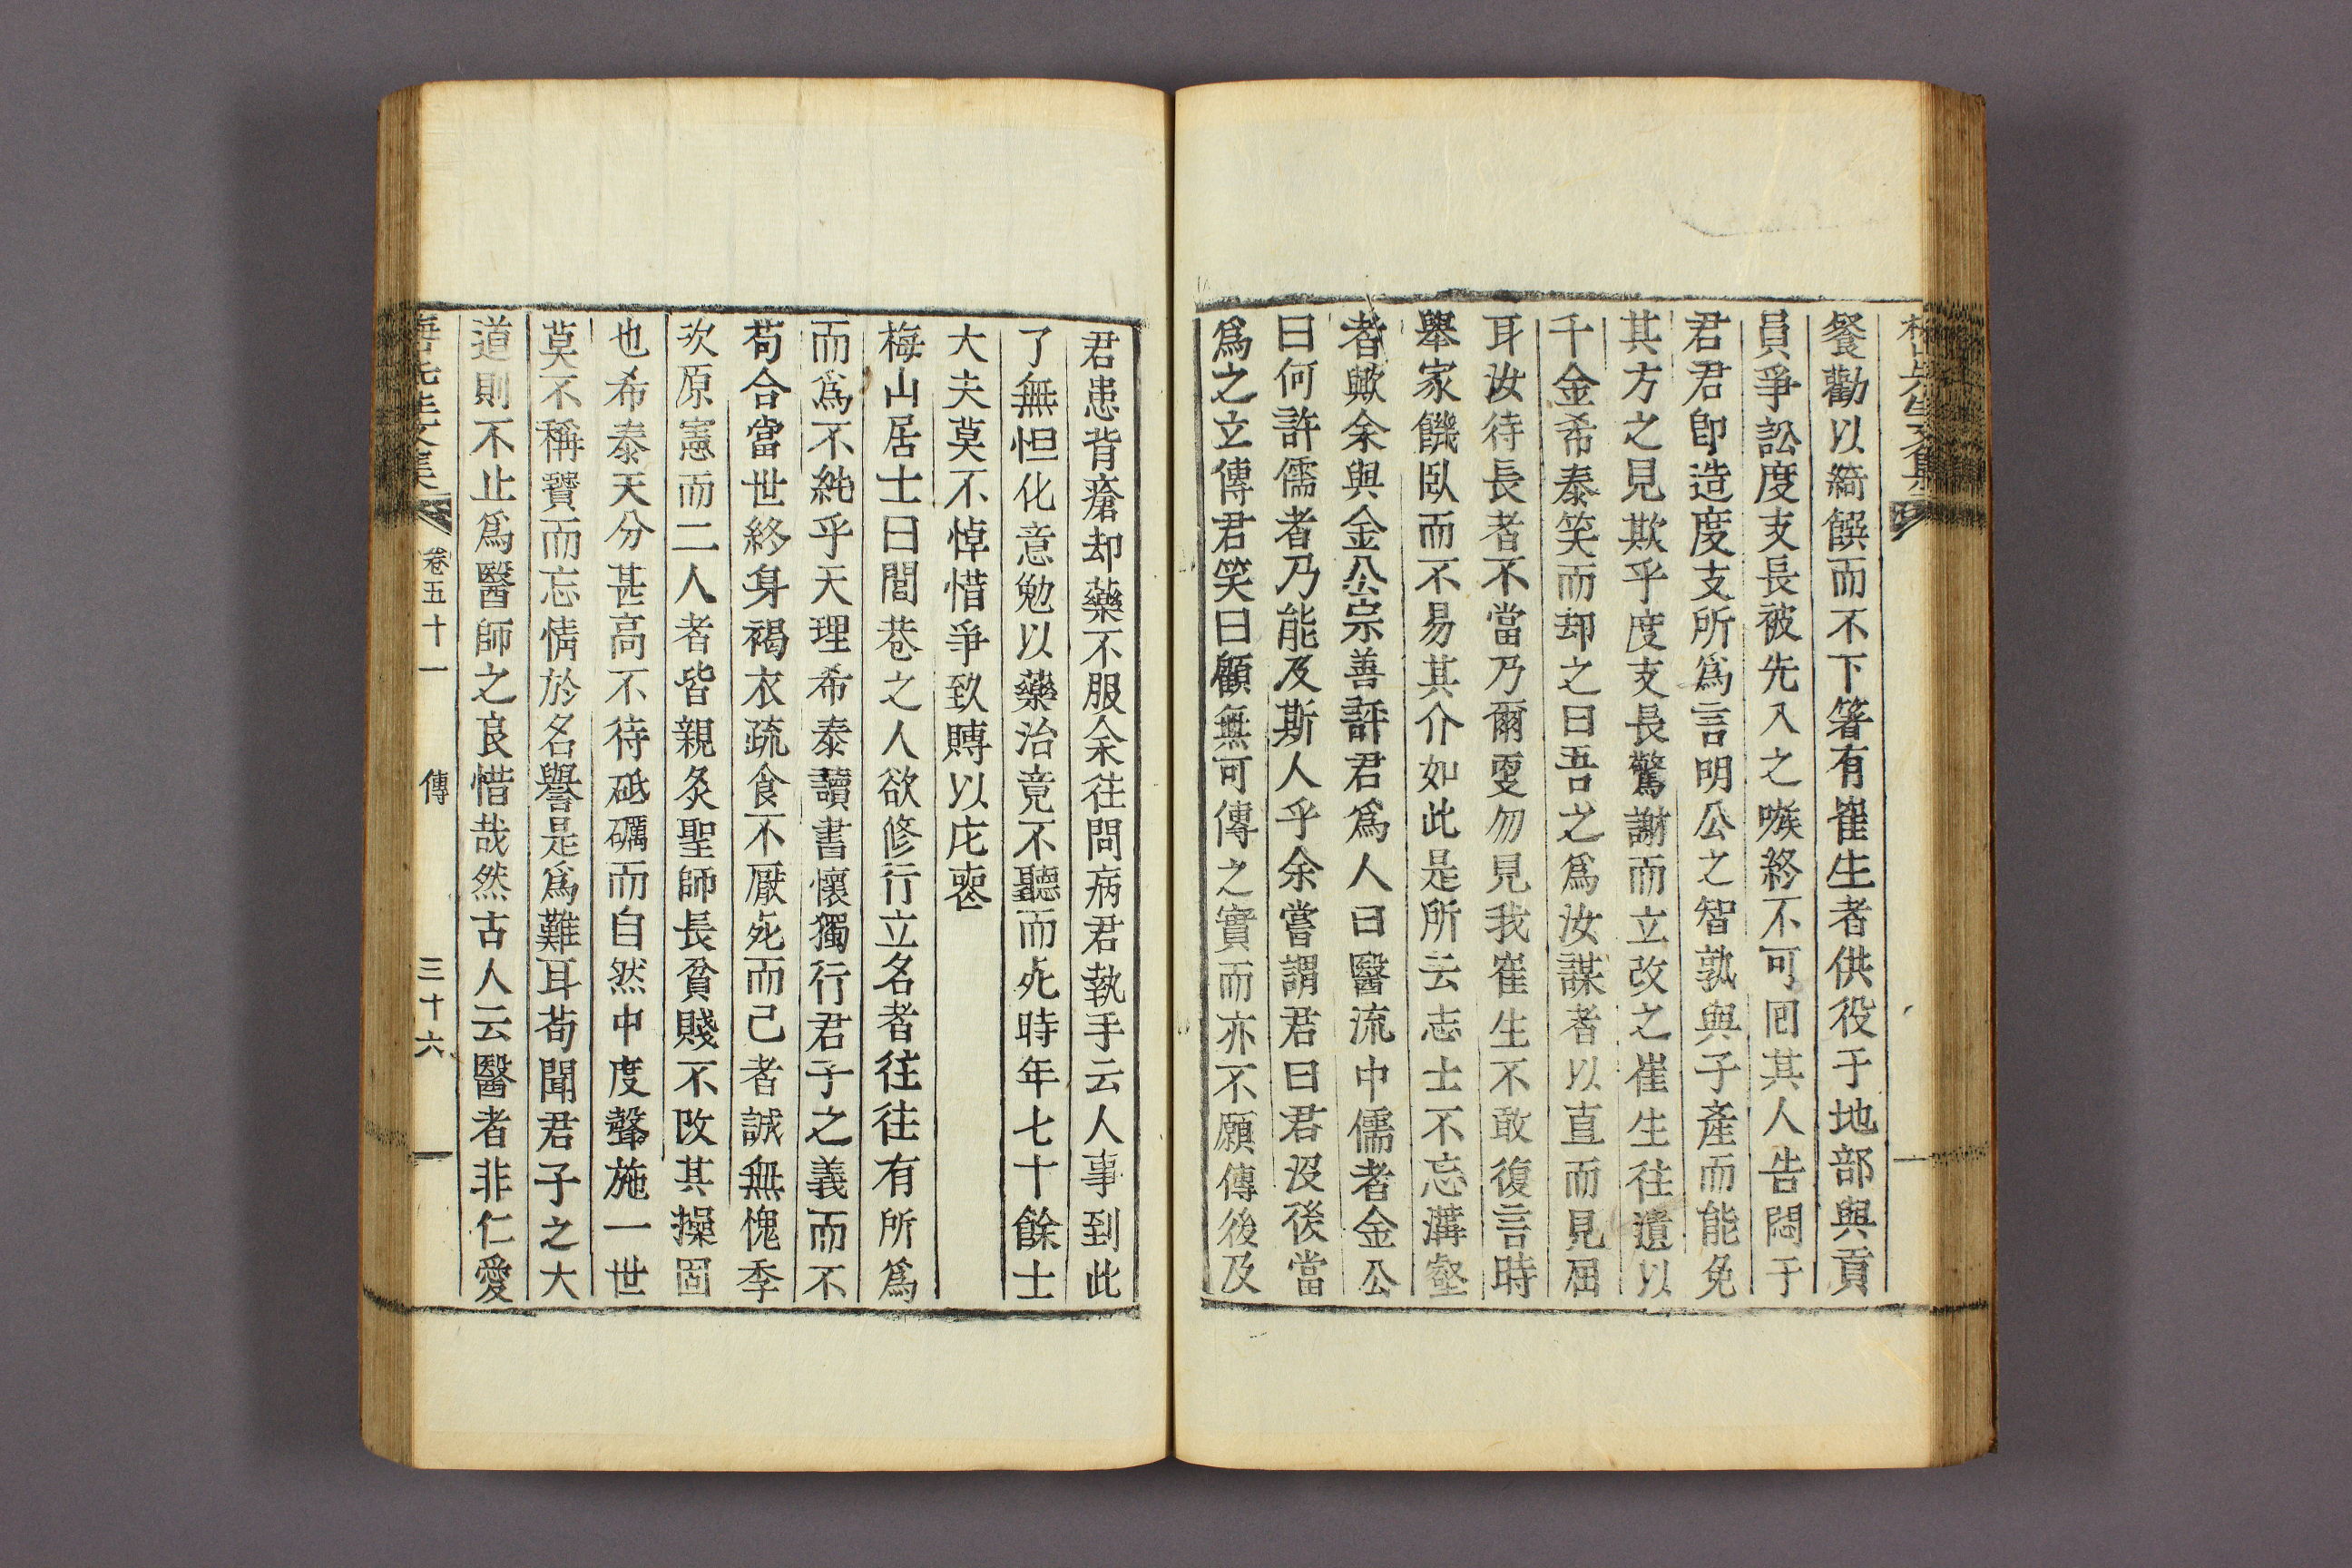 餐勸以綺饌而不下箸有崔生者供役于地部與貢
員爭訟度支長被先入之嗾終不可回其人告悶于
君君卽造度支所爲言明公之智孰與子產而能免
其方之見欺乎度支長驚謝而立改之崔生往遺以
千金希泰笑而却之曰吾之爲汝謀者以直而見屈
耳汝待長者不當乃爾更勿見我崔生不敢復言時
擧家饑臥而不易其介如此是所云志士不忘溝壑
者歟余與金公宗善評君爲人曰醫流中儒者金公
曰何許儒者乃能及斯人乎余嘗謂君曰君沒後當
爲之立傳君笑曰顧無可傳之實而亦不願傳後及
君患背瘡却藥不服余往問病君執手云人事到此
了無怛化意勉以藥治竟不聽而死時年七十餘士
大夫莫不悼惜爭致賻以庀喪
梅山居士曰閭巷之人欲修行立名者往往有所爲
而爲不純乎天理希泰讀書懷獨行君子之義而不
苟合當世終身褐衣疏食不厭死而已者誠無愧季
次原憲而二人者皆親炙聖師長貧賤不改其操固
也希泰天分甚高不待砥礪而自然中度聲施一世
莫不稱寶而忘情於名譽是爲難耳苟聞君子之大
道則不止爲醫師之良惜哉然古人云醫者非仁愛
卷五十一 傳 三十六